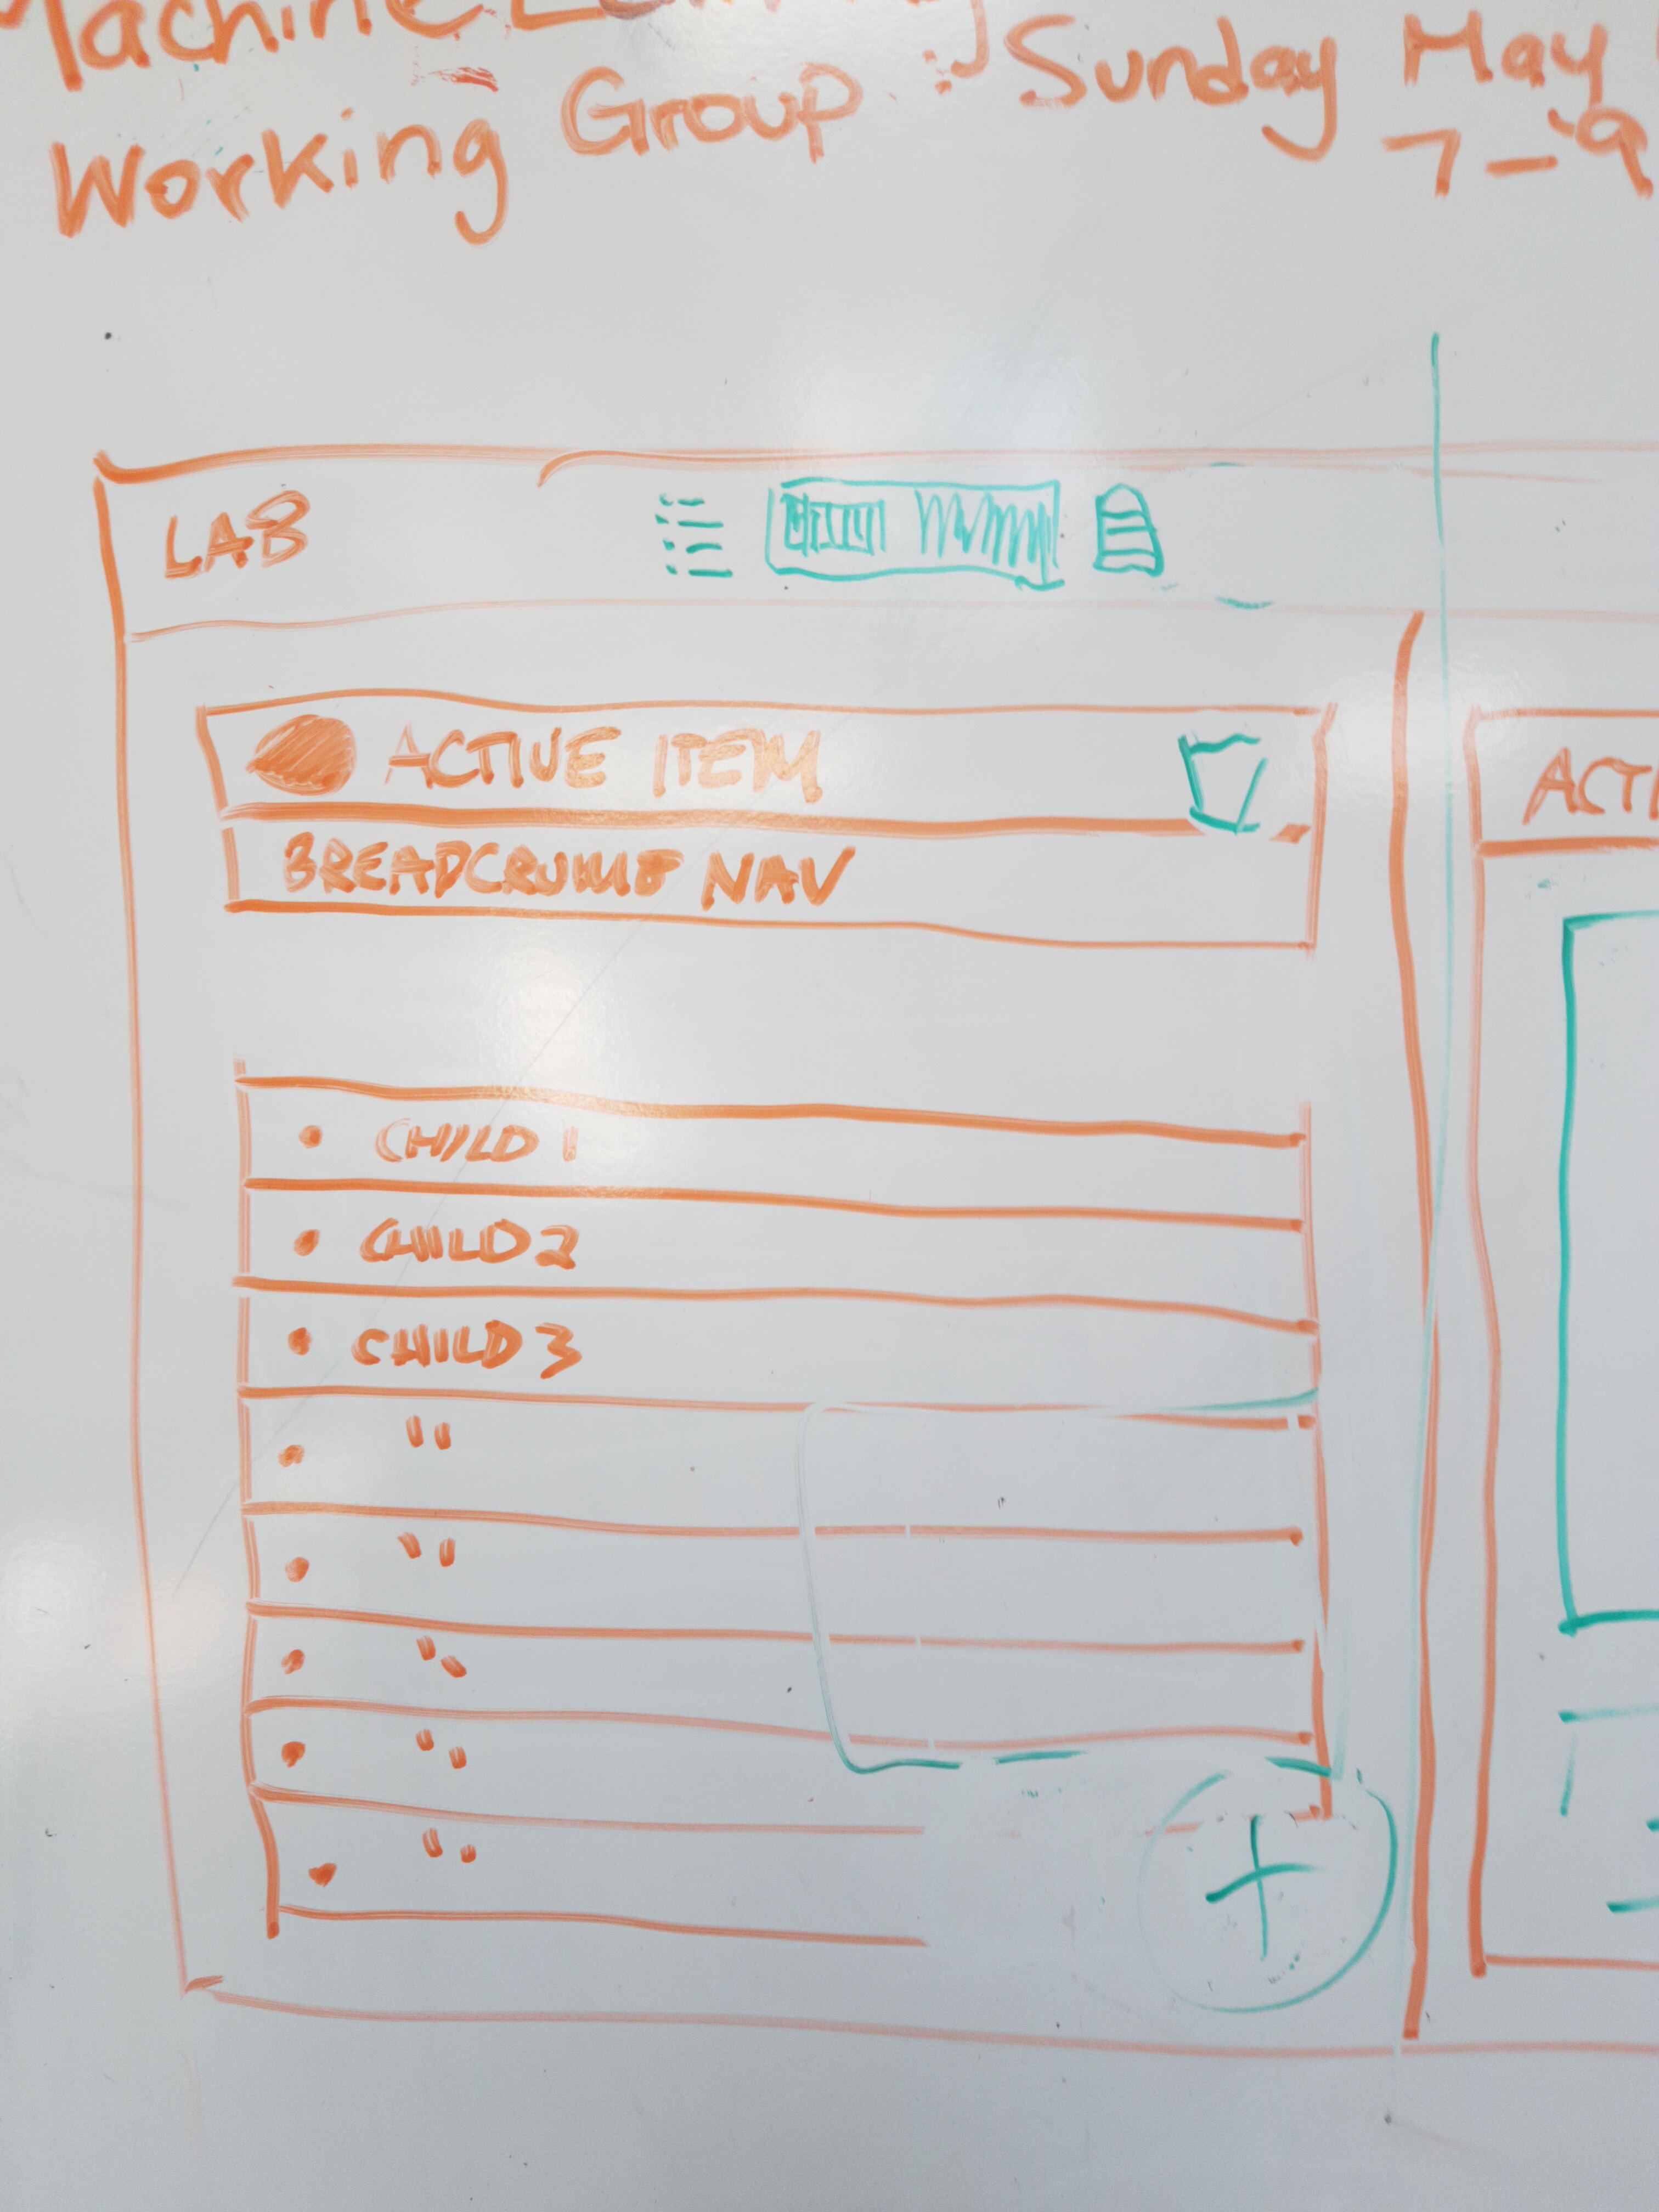 Machine Learning
Working Group : Sunday May
7-9
LAB
ACTIVE ITEM
BREADCRUMB NAV
ACTI
CHILD 1
CHILD 2
CHILD 3
"
"
"
"
"
+